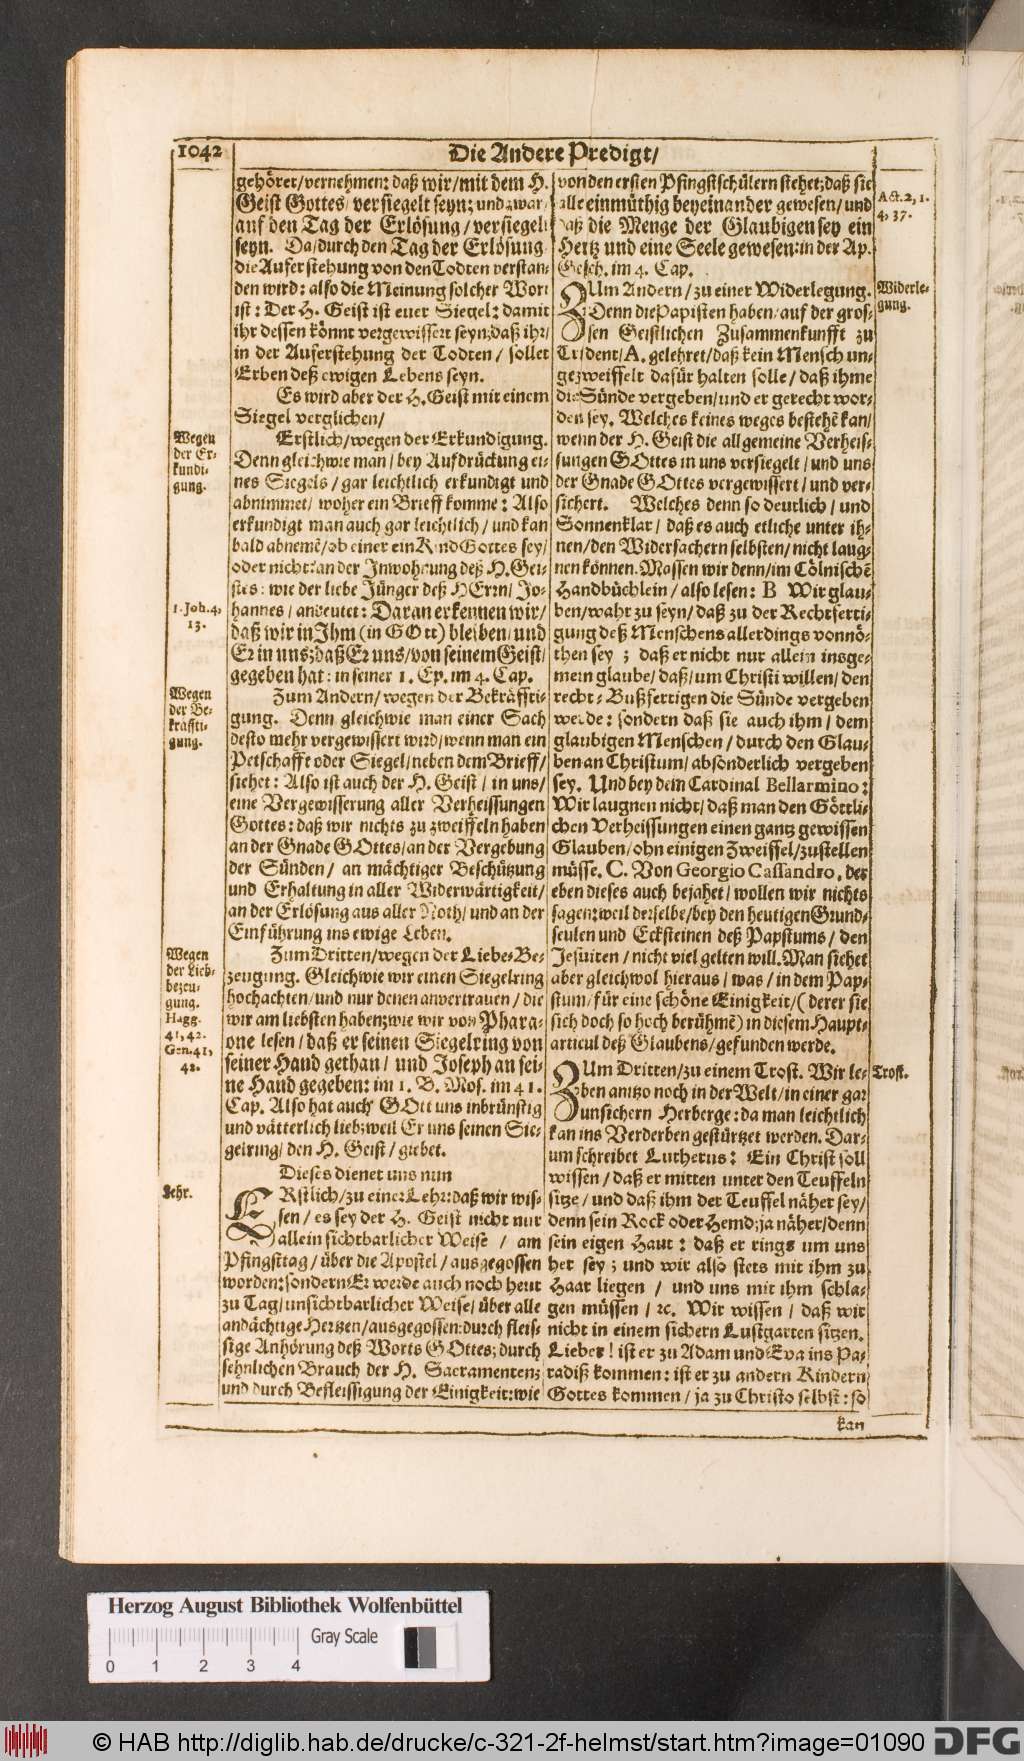 1042
Die Andere Predigt/
gehöret/vernehmen: daß wir/mit dem H.
Geist Gottes/ versiegelt seyn; und zwar/
auf den Tag der Erlösung/versiegelt
seyn. Da/durch den Tag der Erlösung/
die Auferstehung von den Todten verstan-
den wird: also die Meinung solcher Wort
ist: Der H. Geist ist euer Siegel: damit
ihr dessen könnt vergewissert seyn; daß ihr/
in der Auferstehung der Todten/ sollet
Erben deß ewigen Lebens seyn.
Es wird aber der H. Geist mit einem
Siegel verglichen/
Wegen
der Er-
kundi-
gung.
Erstlich/wegen der Erkundigung.
Denn gleichwie man/ bey Aufdrückung ei-
nes Siegels/ gar leichtlich erkundigt und
abnimmet/ woher ein Brieff komme: Also
erkundigt man auch gar leichtlich/ und kan
bald abnemē/ob einer ein Kind Gottes sey/
oder nicht: an der Inwohnung deß H. Gei-
stes: wie der liebe Jünger deß HErrn/ Jo-
1. Joh. 4,
13.
hannes/ andeutet: Daran erkennen wir/
daß wir in Ihm (in GOtt) bleiben/ und
Er in uns; daß Er uns/ von seinem Geist/
gegeben hat: in seiner 1. Ep. im 4. Cap.
Wegen
der Be-
kräffti-
gung.
Zum Andern/ wegen der Bekräffti-
gung. Denn gleichwie man einer Sach
desto mehr vergewissert wird/wenn man ein
Petschafft oder Siegel/neben dem Brieff/
siehet: Also ist auch der H. Geist/ in uns/
eine Vergewisserung aller Verheissungen
Gottes: daß wir nichts zu zweiffeln haben
an der Gnade GOttes/an der Vergebung
der Sünden/ an mächtiger Beschützung
und Erhaltung in aller Widerwärtigkeit/
an der Erlösung aus aller Noth/ und an der
Einführung ins ewige Leben.
Wegen
der Lieb-
bezeu-
gung.
Hagg.
41, 42.
Gen. 41,
42.
Zum Dritten/wegen der Liebe-Be-
zeugung. Gleichwie wir einen Siegelring
hochachten/und nur denen anvertrauen/ die
wir am liebsten haben; wie wir von Phara-
one lesen/ daß er seinen Siegelring von
seiner Hand gethan/ und Joseph an sei-
ne Hand gegeben: im 1. B. Mos. im 41.
Cap. Also hat auch GOtt uns inbrünstig
und vätterlich lieb; weil Er uns seinen Sie-
gelring/ den H. Geist/ giebet.
Dieses dienet uns nun
Lehr.
ERstlich/zu einer Lehr: daß wir wis-
sen/ es sey der H. Geist nicht nur
allein sichtbarlicher Weise/ am
Pfingsttag/ über die Apostel/ ausgegossen
worden: sondern Er werde auch noch heut
zu Tag/unsichtbarlicher Weise/ über alle
andächtige Hertzen/ausgegossen: durch fleis-
sige Anhörung deß Worts GOttes; durch
sehnlichen Brauch der H. Sacramenten;
und durch Befleissigung der Einigkeit: wie
von den ersten Pfingstschülern stehet; daß sie
alle einmüthig beyeinander gewesen/ und
daß die Menge der Glaubigen sey ein
Hertz und eine Seele gewesen: in der Ap.
Gesch. im 4. Cap.
Act. 2, 1.
4, 37.
Widerle-
gung.
ZUm Andern/ zu einer Widerlegung.
Denn die Papisten haben/ auf der gros-
sen Geistlichen Zusammenkunfft zu
Trident/ A. gelehret/ daß kein Mensch un-
gezweiffelt dafür halten solle/ daß ihme
die Sünde vergeben/ und er gerecht wor-
den sey. Welches keines weges bestehē kan/
wenn der H. Geist die allgemeine Verheis-
sungen GOttes in uns versiegelt/ und uns
der Gnade GOttes vergewissert/ und ver-
sichert. Welches denn so deutlich/ und
Sonnenklar/ daß es auch etliche unter ih-
nen/den Widersachern selbsten/ nicht laug-
nen können. Massen wir denn/im Cölnischē
Handbüchlein/ also lesen: B Wir glau-
ben/wahr zu seyn/ daß zu der Rechtferti-
gung deß Menschens allerdings vonnö-
then sey; daß er nicht nur allein insge-
mein glaube/ daß/um Christi willen/ den
recht-Bußfertigen die Sünde vergeben
werde: sondern daß sie auch ihm/ dem
glaubigen Menschen/ durch den Glau-
ben an Christum/ absonderlich vergeben
sey. Und bey dem Cardinal Bellarmino:
Wir laugnen nicht/ daß man den Göttli-
chen Verheissungen einen gantz gewissen
Glauben/ ohn einigen Zweiffel/zustellen
müsse. C. Von Georgio Cassandro, der
eben dieses auch bejahet/ wollen wir nichts
sagen; weil derselbe/bey den heutigen Grund-
seulen und Ecksteinen deß Papstums/ den
Jesuiten/ nicht viel gelten will. Man siehet
aber gleichwol hieraus/ was/ in dem Pap-
stum/ für eine schöne Einigkeit/ (derer sie
sich doch so hoch berühmē) in diesem Haupt-
articul deß Glaubens/ gefunden werde.
Trost.
ZUm Dritten/zu einem Trost. Wir le-
ben anitzo noch in der Welt/ in einer gar
unsichern Herberge: da man leichtlich
kan ins Verderben gestürtzet werden. Dar-
um schreibet Lutherus: Ein Christ soll
wissen/ daß er mitten unter den Teuffeln
sitze/ und daß ihm der Teuffel näher sey/
denn sein Rock oder Hemd; ja näher/denn
sein eigen Haut: daß er rings um uns
her sey; und wir also stets mit ihm zu
Haar liegen/ und uns mit ihm schla-
gen müssen/ ꝛc. Wir wissen/ daß wir
nicht in einem sichern Lustgarten sitzen.
Lieber! ist er zu Adam und Eva ins Pa-
radiß kommen: ist er zu andern Kindern
Gottes kommen/ ja zu Christo selbst: so
kan
Herzog August Bibliothek Wolfenbüttel
Gray Scale
0 1 2 3 4
© HAB http://diglib.hab.de/drucke/c-321-2f-helmst/start.htm?image=01090
DFG